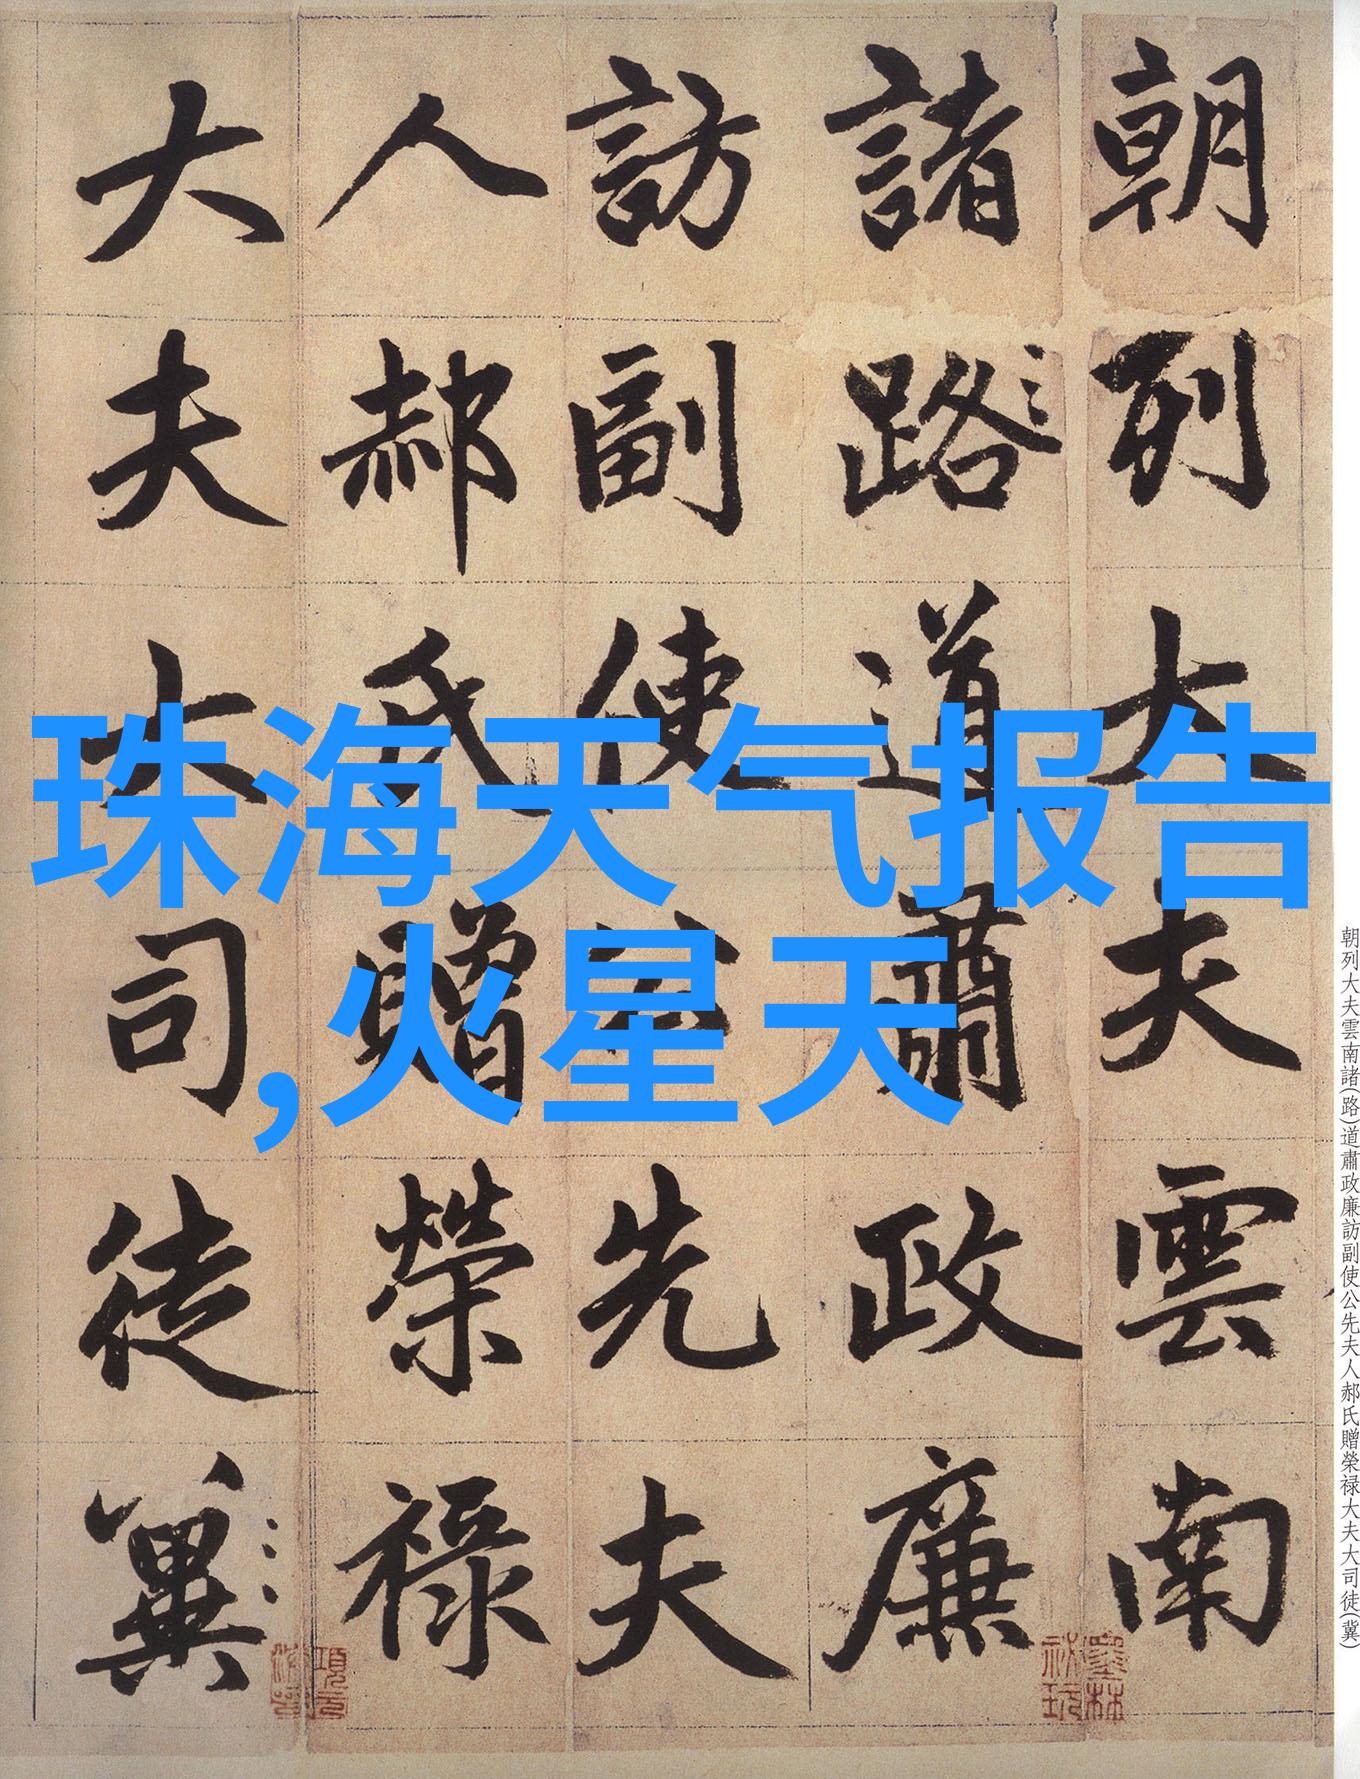 珠海天气报告
,火星天
朝列大夫雲南
諸路道肅政廉
訪副使公先夫
人郝氏贈榮祿
大夫大司徒冀
朝列大夫雲南諸(路)道肅政廉訪副使公先夫人郝氏贈榮禄大夫大司徒(冀)